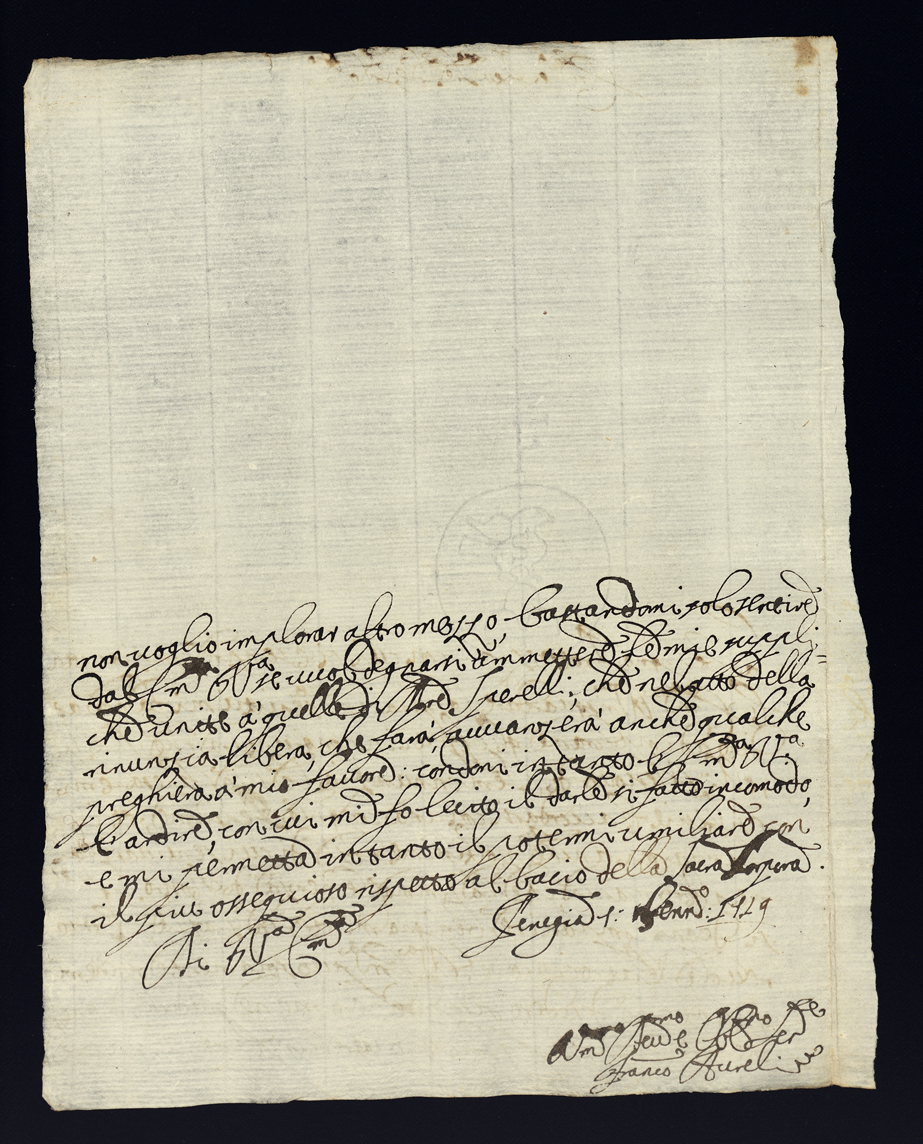 non voglio implorar altro mezzo, bastandomi solo sentire
dall' Em.za V.ra se vuol degnarsi ammettere le mie suppli=
che unite à quelle di Mre Sperelli, che nell' atto della
rinunzia libera, che farà, avvanzerà anche qualche
preghiera à mio favore: condoni intanto l' Em.za V.ra
l' ardire, con cui mi fo lecito il darle sì fatto incomodo,
e mi permetta intanto il potermi umiliare con
il più ossequioso rispetto al bacio della Sacra Porpora.
Di V.ra Em.za
Venezia 1: Genn.o: 1719
Um.mo Dev.mo Obb.mo Ser.e
Franc.o Aureli